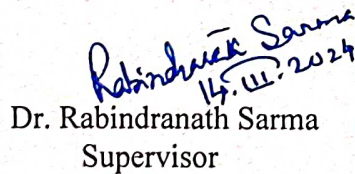 Rabindranath Sarma
14.III.2024
Dr. Rabindranath Sarma
Supervisor